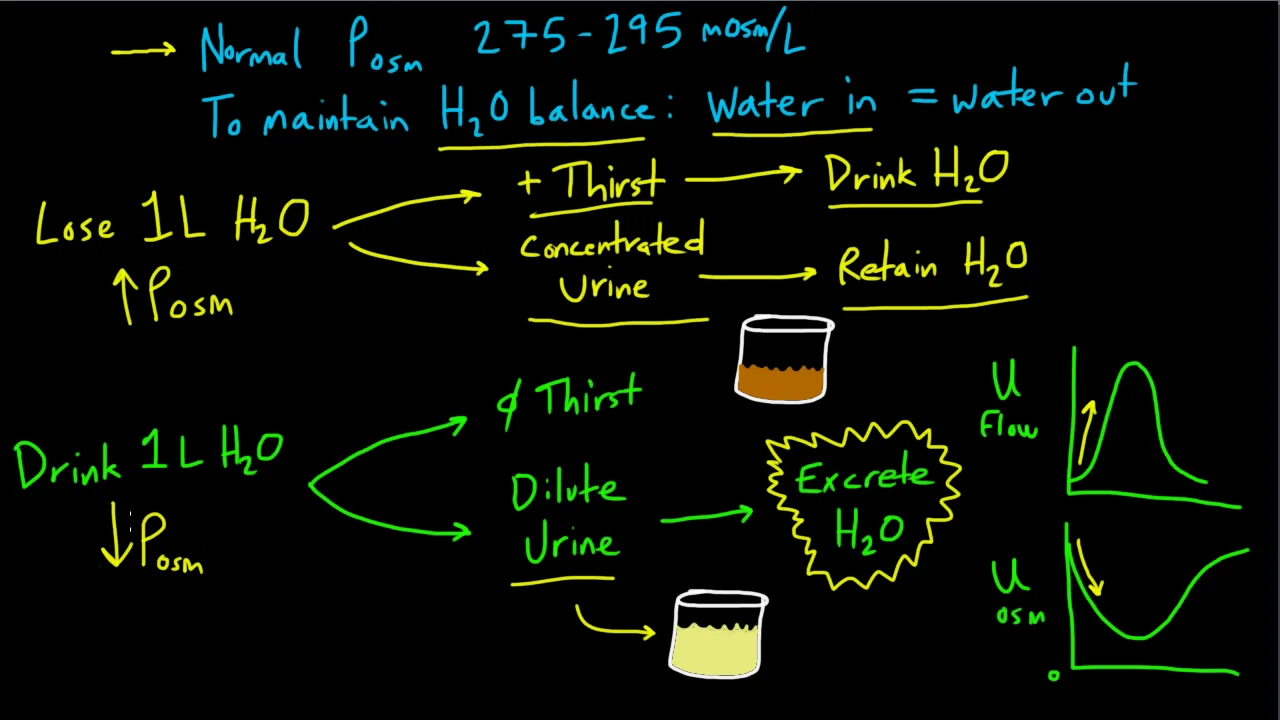 → Normal Posm 275-295 mosm/L
To maintain H₂O balance: Water in = water out
Lose 1L H₂O
↑ Posm
+ Thirst → Drink H₂O
Concentrated
Urine → Retain H₂O
Drink 1L H₂O
↓ Posm
∅ Thirst
Dilute
Urine →
Excrete
H₂O
U
Flow
U
osm
0